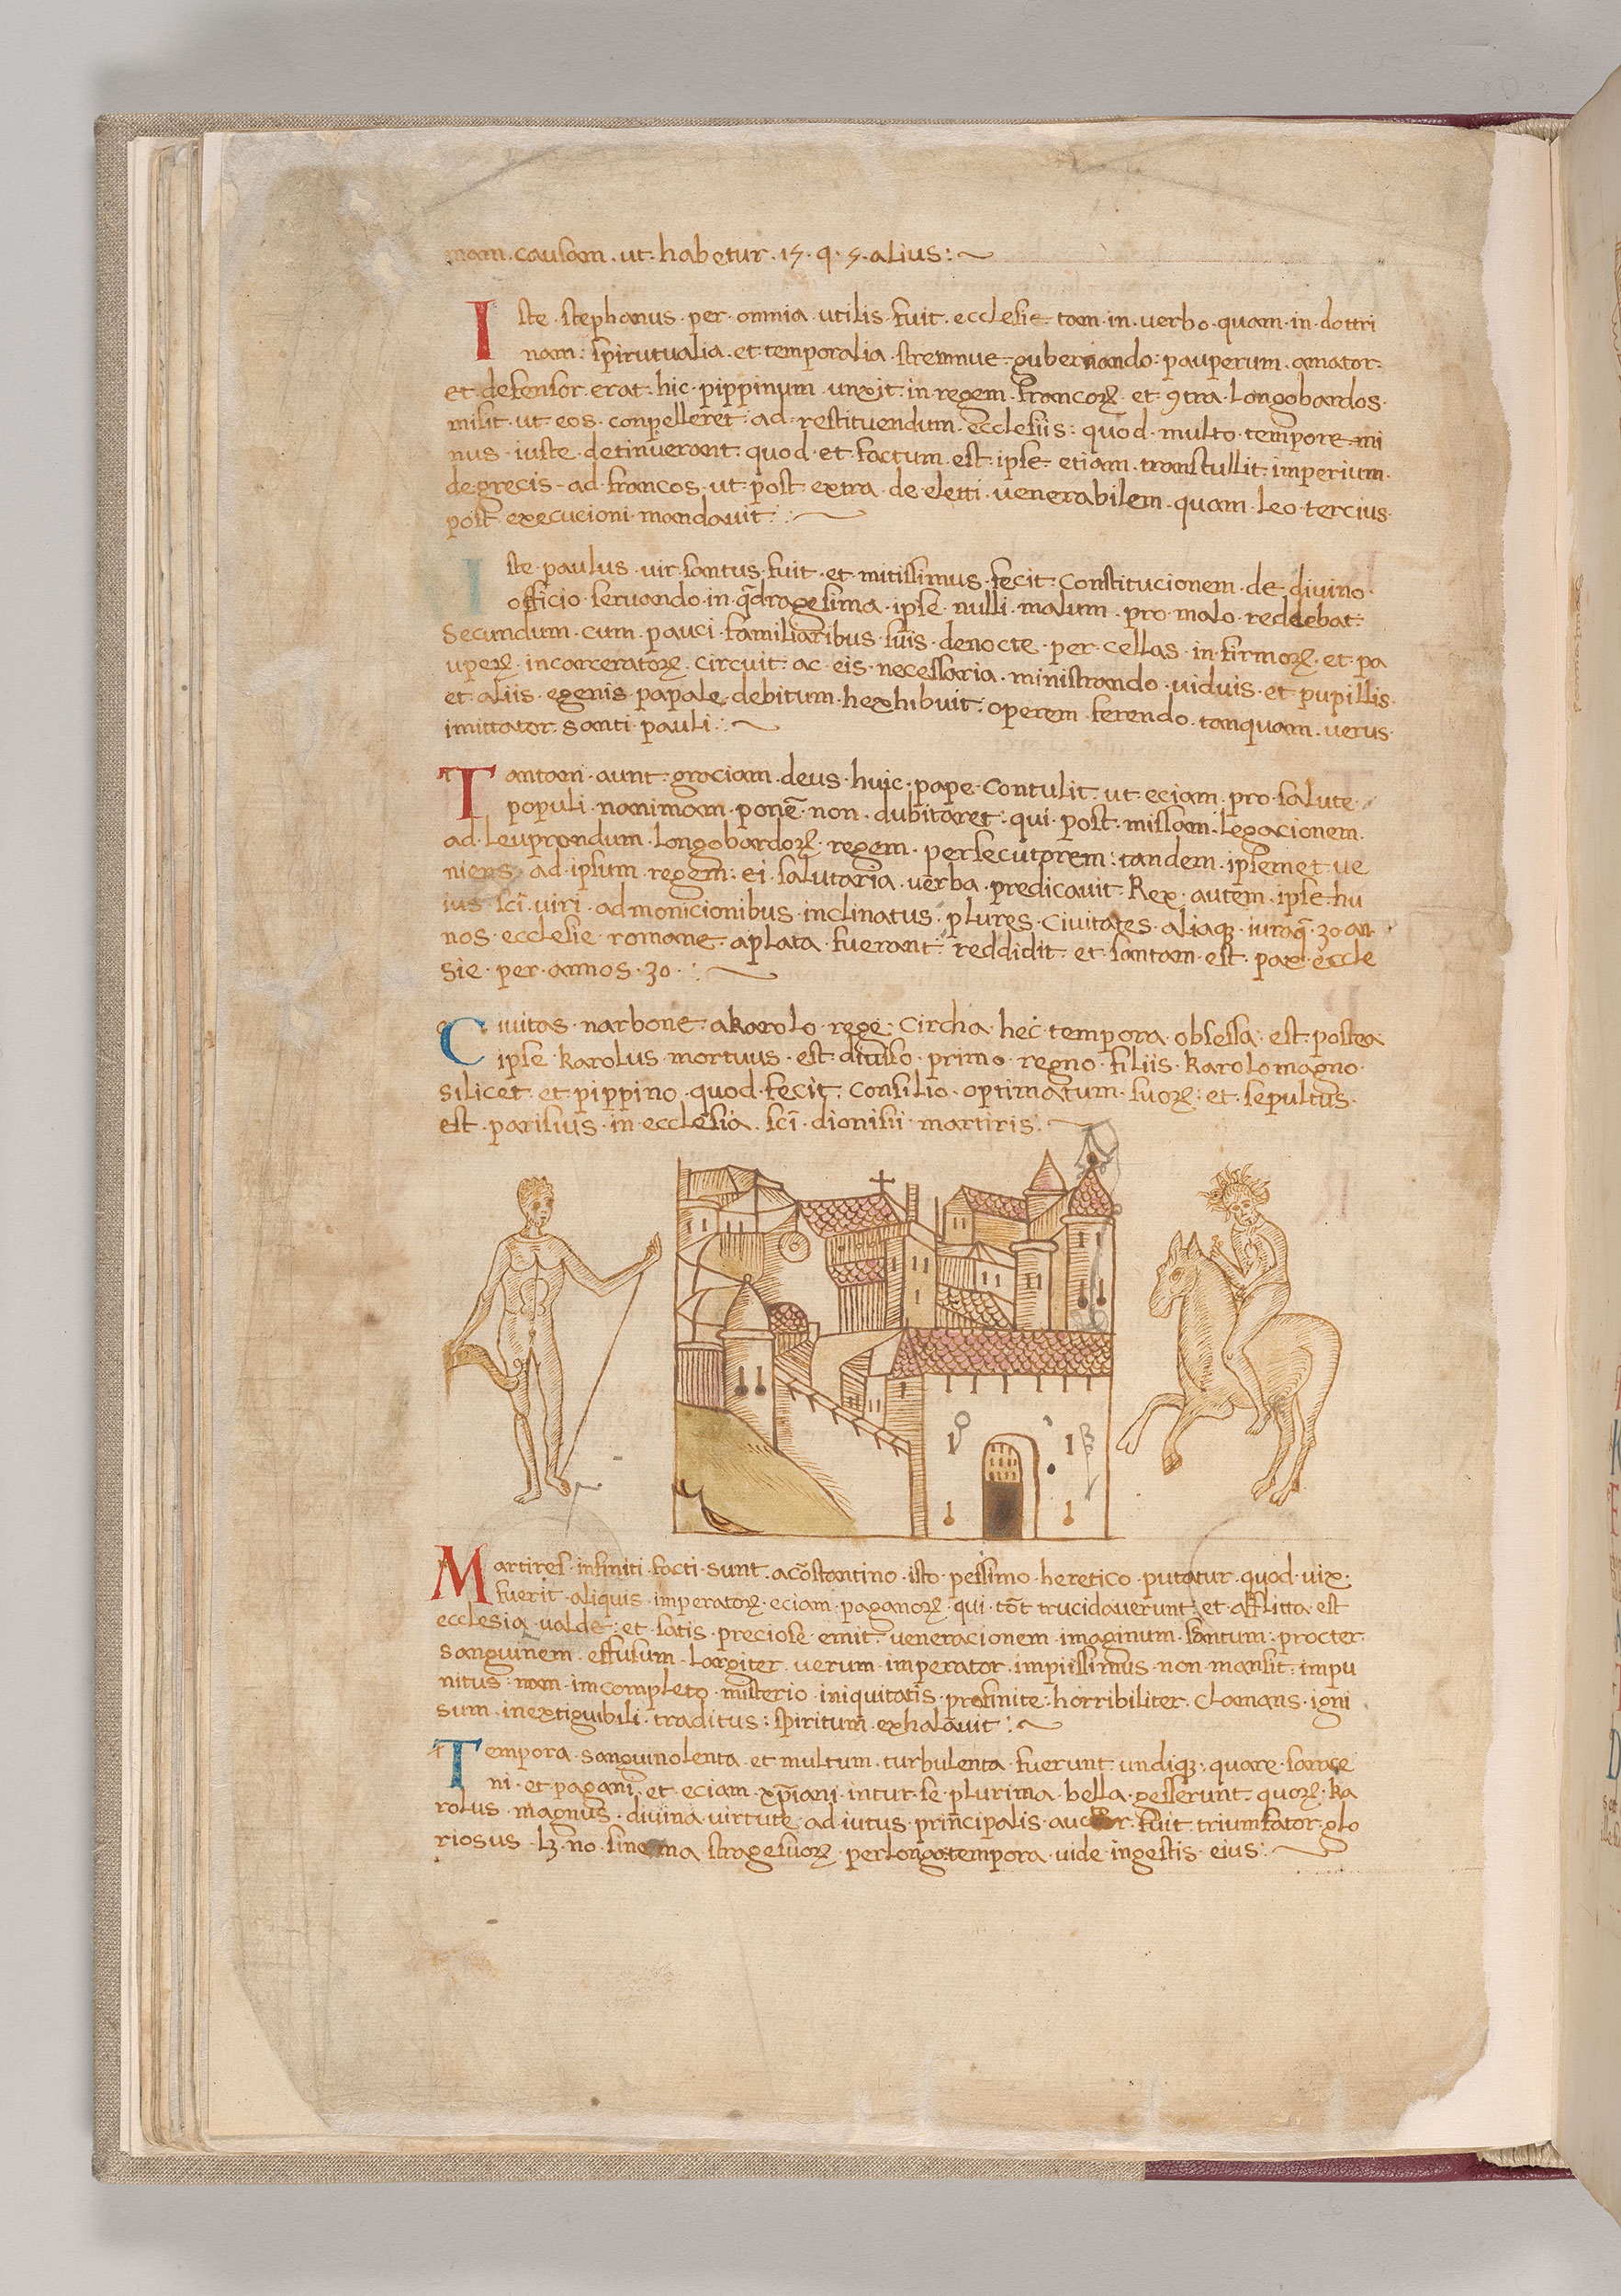 mam. causam. ut. habetur. 15. q. 5. alius:~
Iste. stephanus. per. omnia. utilis. fuit. ecclesie. tam. in. verbo. quam. in. dottri
nam: spirutualia. et temporalia. stremnue. gubernando: pauperum. amator.
et. defensor. erat. hic. pippinum. unxit. in regem. francorꝝ. et. ꝯtra. Longobardos.
misit. ut. eos. conpelleret. ad. restituendum. ecclesiis: quod. multo. tempore. mi
nus. iuste. detinuerant. quod. et. factum. est. ipse. etiam. transtullit. imperium.
de grecis. ad. francos. ut. post. extra. de. eletti. venerabilem. quam. Leo. tercius.
post. execucioni. mandauit:~
Iste. paulus. uir. santus. fuit. et. mitissimus. fecit. Constitucionem. de. divino.
officio. seruando. in. q̄dragesima. ipse. nulli. malum. pro. malo. reddebat:
Secundum. cum. pauci. familiaribus. suis. denocte. per. cellas. in. firmorꝝ. et. pa
uperꝝ. incarceratorꝝ. circuit. ac. eis. necessaria. ministrando. viduis. et. pupillis.
et. aliis. egenis. papale. debitum. hexhibuit: operem. ferendo. tanquam. verus.
imittator. santi. pauli:~
Tantam. aunt. graciam. deus. huic. pape. Contulit. ut. eciam. pro. salute.
populi. nanimam. ponē. non. dubitaret: qui. post. missam. Legacionem.
ad. Leuprandum. Longobardorꝝ. regem. persecutorem: tandem. ipsemet. ue
niens. ad. ipsum. regem: ei. salutaria. verba. predicauit. Rex. autem. ipse. hu
ius. sc̄i. uiri. admonicionibus. inclinatus. plures. Ciuitates. aliaqꝫ. iuraq̄. 30. an
nos. ecclesie. romane. aplata. fuerant. reddidit. et. santam. est. pax. eccle
sie. per. annos. 30.:~
Ciuitas. narbone. akarolo. rege. Circha. hec. tempora. obsessa. est. postea
ipse. karolus. mortuus. est. diuiso. primo. regno. filiis. karolo magno.
silicet. et. pippino. quod. fecit. Consilio. optimatum. suorꝝ: et. sepultus.
est. parisius. in. ecclesia. sc̄i. dionisii. martiris.
Martires. infiniti. facti. sunt. acōstantino. isto. pessimo. heretico. putatur. quod. uix.
fuerit. aliquis. imperatorꝝ. eciam. paganorꝝ. qui. tōt. trucidauerunt. et. afflitta. est
ecclesia. ualde: et. satis. preciose. emit. ueneracionem. imaginum. santum: procter.
sanguinem. effusum. Largiter. verum. imperator. impiissimus. non. mansit. impu
nitus. nam. imcompleto. misterio. iniquitatis. profinite: horribiliter. clamans. igni.
sum. inextiguibili. traditus: spiritum. exhalauit:~
Tempora. sanguinolenta. et. multum. turbulenta. fuerunt. undiqꝫ. quare. sarrace
ni. et. pagani. et. eciam. xp̄iani. intur. se. plurima. bella. gesserunt. quorꝝ. ka
rolus. magnus. diuina. uirtute. ad iutus. principalis. auctor. fuit. triumfator. glo
riosus. lꝫ. no. sine strage suorꝝ. per longa tempora. uide. ingestis. eius:~